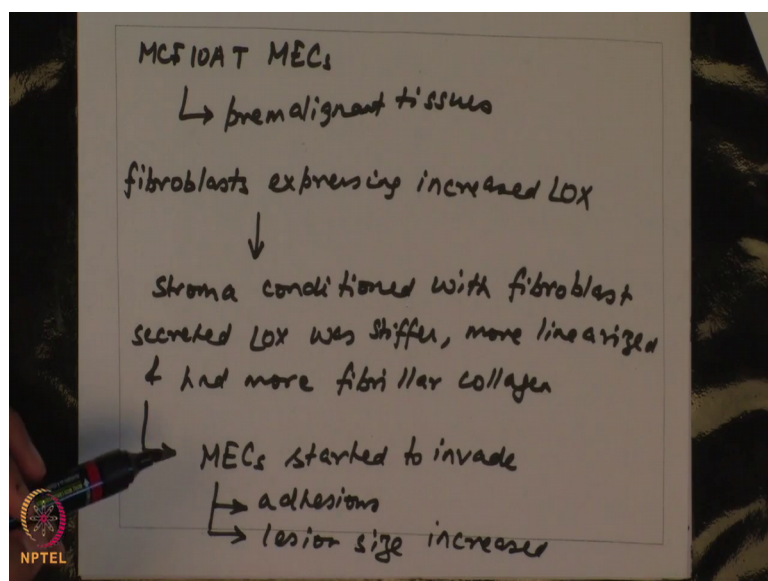 MCF10AT MECs
↳ premalignant tissues
fibroblasts expressing increased LOX
↓
stroma conditioned with fibroblast
secreted LOX was stiffer, more linearized
& had more fibrillar collagen
→ MECs started to invade
→ adhesions
→ lesion size increased
NPTEL